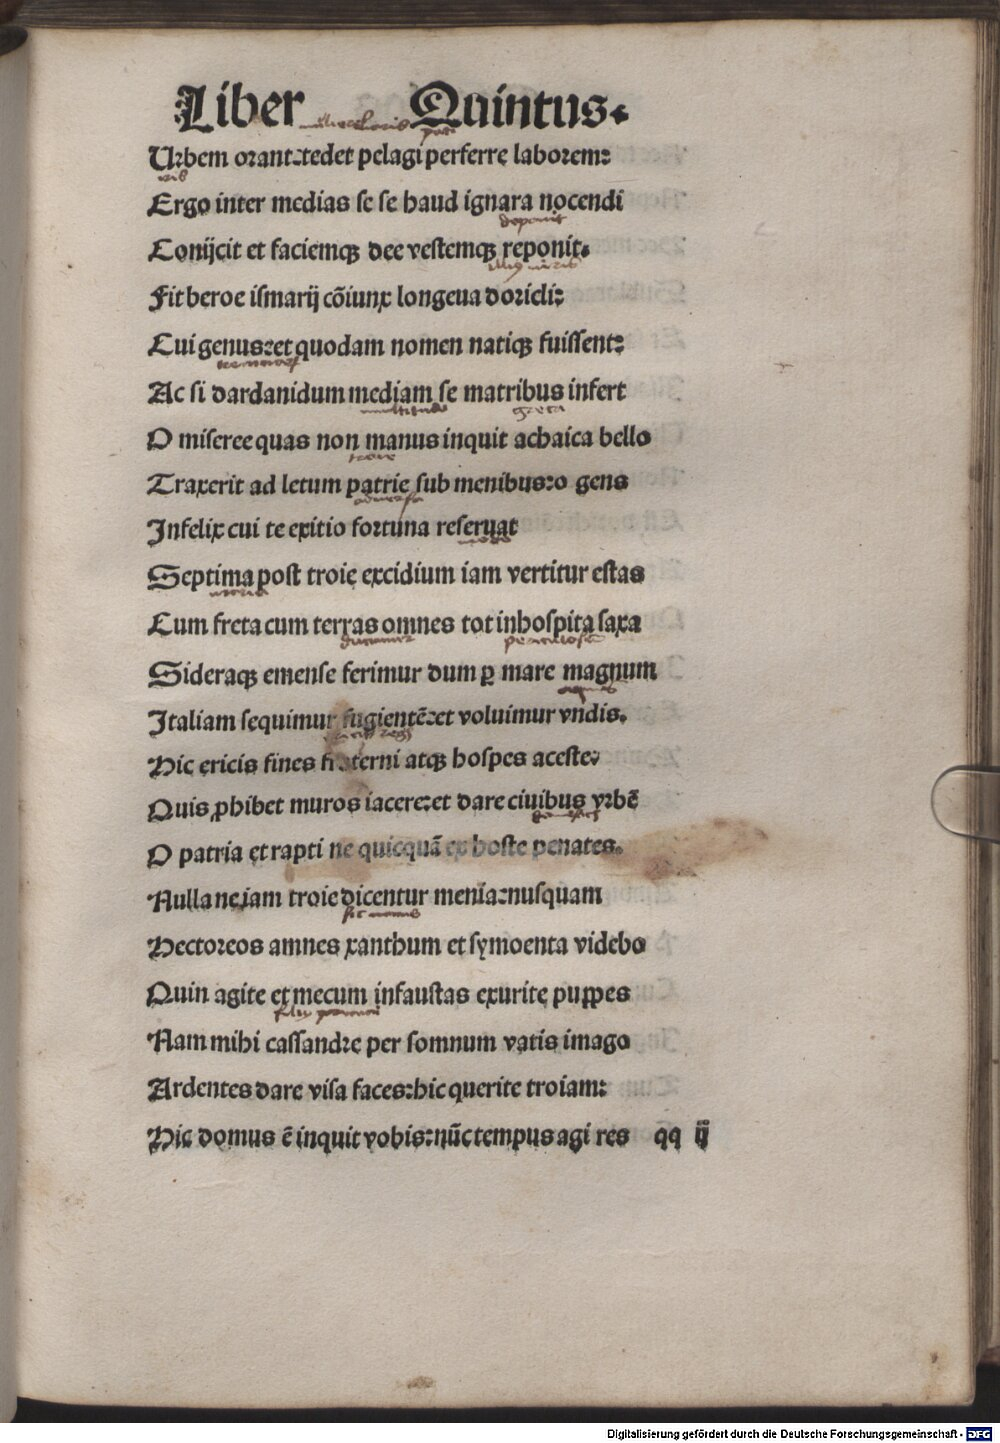 Liber Quintus.
Urbem orant: tedet pelagi perferre laborem:
Ergo inter medias se se haud ignara nocendi
deponit
Conijcit et faciemqꝫ dee vestemqꝫ reponit.
Fit beroe ismarij cōiunx longeua doricli:
Cui genus: et quodam nomen natiqꝫ fuissent:
Ac si dardanidum mediam se matribus infert
multitudo greca
O misere e quas non manus inquit achaica bello
Traxerit ad letum patrie sub menibus: o gens
Infelix cui te exitio fortuna reseruat
Septima post troie excidium iam vertitur estas
Cum freta cum terras omnes tot inhospita saxa
ducimur
Sideraqꝫ emense ferimur dum ꝑ mare magnum
Italiam sequimur fugientē: et voluimur vndis.
Hic ericis fines fraterni atqꝫ hospes aceste:
Quis ꝓhibet muros iacere: et dare ciuibus vrbē
O patria et rapti ne quicquā ex hoste penates.
Nulla ne iam troie dicentur menia: nusquam
Hectoreos amnes xanthum et symoenta videbo
Quin agite et mecum infaustas exurite puppes
Nam mihi cassandre per somnum vatis imago
Ardentes dare visa faces: hic querite troiam:
Hic domus ē inquit vobis: nūc tempus agi res qq ij
Digitalisierung gefördert durch die Deutsche Forschungsgemeinschaft - DFG